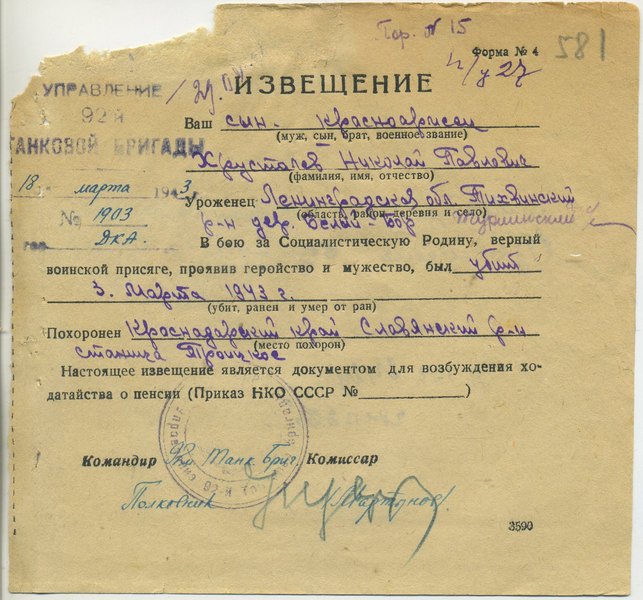 Пор. № 15
Форма № 4
581
УПРАВЛЕНИЕ
92й
ТАНКОВОЙ БРИГАДЫ
18 марта 1943
№ 1903
ДКА.
п/у 27
ИЗВЕЩЕНИЕ
Ваш сын - красноармеец
(муж, сын, брат, военное звание)
Хрусталев Николай Павлович
(фамилия, имя, отчество)
Уроженец Ленинградская обл. Тихвинский
(область, район, деревня и село)
р-н дер. Белый - Бор
В бою за Социалистическую Родину, верный
воинской присяге, проявив геройство и мужество, был убит
3. Марта 1943 г.
(убит, ранен и умер от ран)
Похоронен Краснодарский край Славянский р-н
(место похорон)
станица Троицкое
Настоящее извещение является документом для возбуждения хо-
датайства о пенсии (Приказ НКО СССР № )
Командир Танк Бриг. Комиссар
Полковник
3590